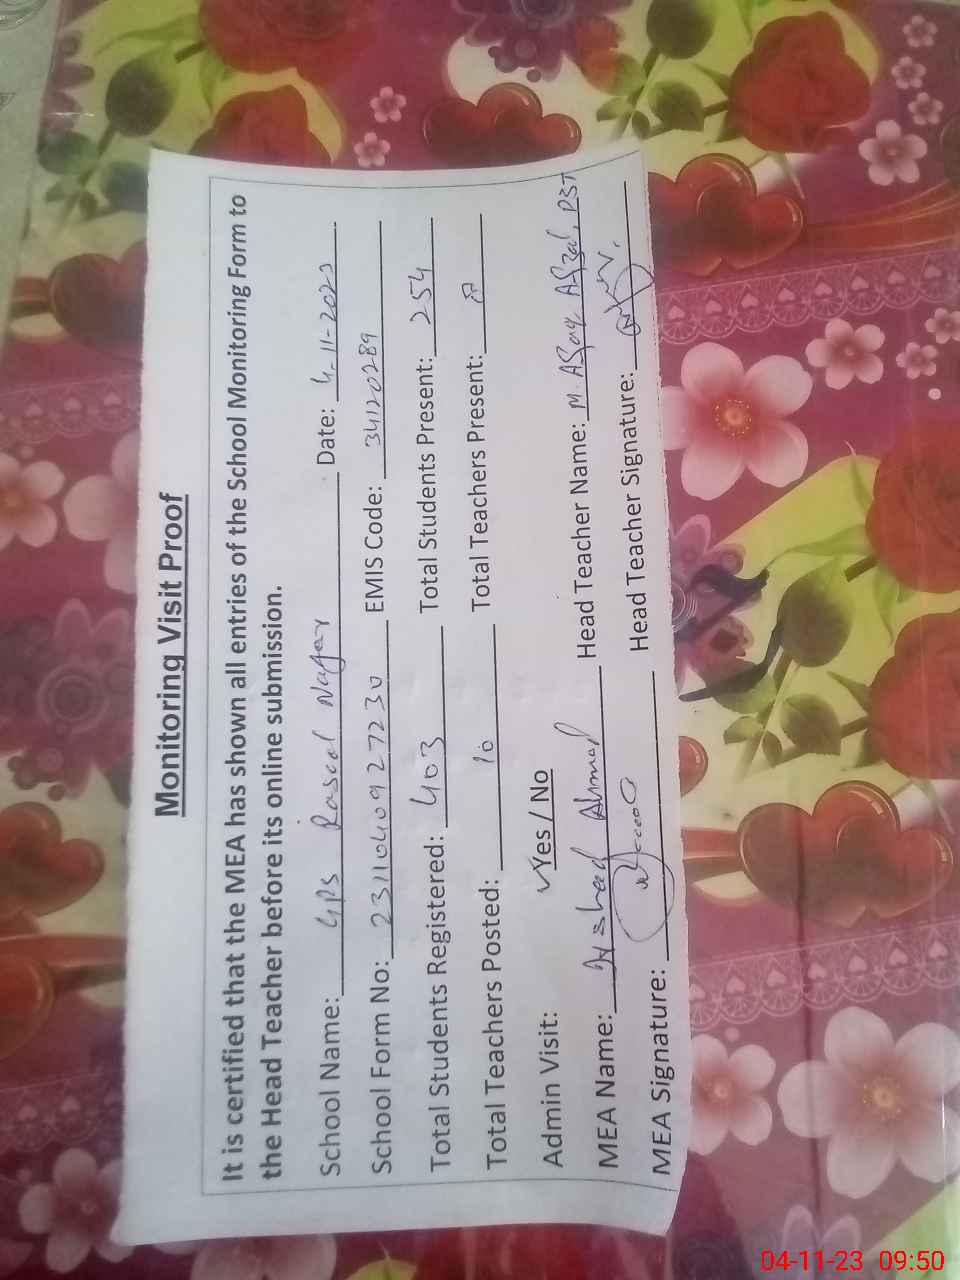 Monitoring Visit Proof
It is certified that the MEA has shown all entries of the School Monitoring Form to
the Head Teacher before its online submission.
School Name: GPS Rasool Nager Date: 4-11-2023
School Form No: 2311040927230 EMIS Code: 34120289
Total Students Registered: 403 Total Students Present: 254
Total Teachers Posted: 10 Total Teachers Present:
Admin Visit: ✓Yes / No
MEA Name: Ahmad Head Teacher Name: M. Afzal, PST
MEA Signature: Head Teacher Signature:
04-11-23 09:50